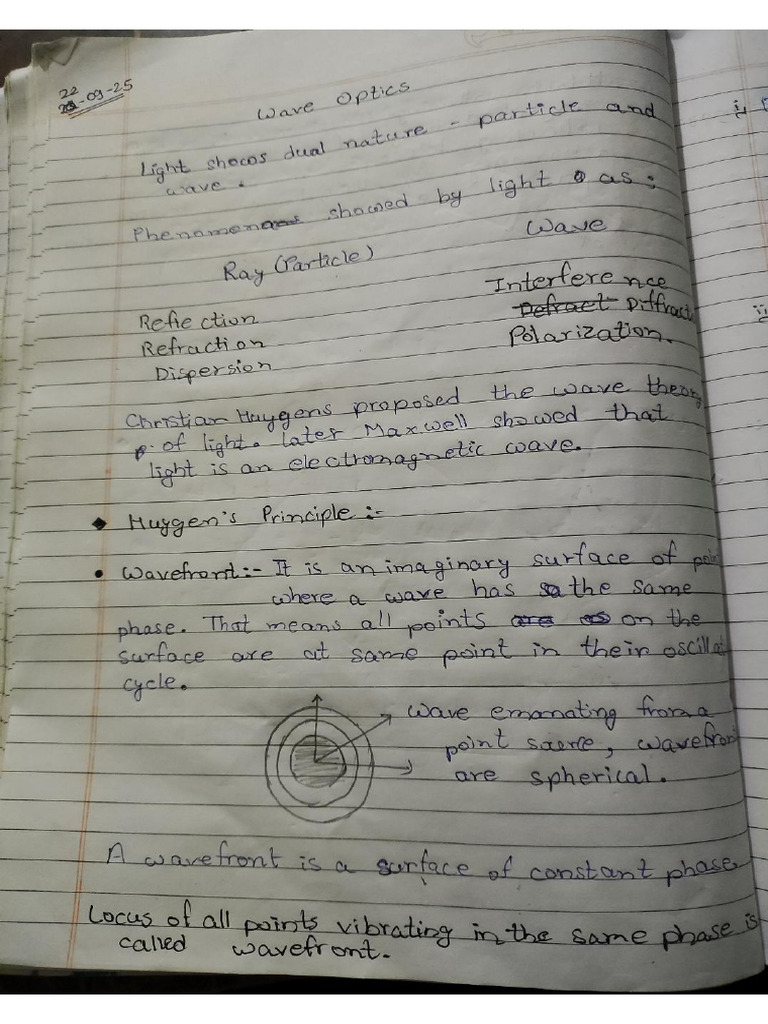 22-09-25
Wave Optics
Light shows dual nature - particle and
wave.
Phenomena showed by light as:
Ray (Particle) Wave
Reflection Interference
Refraction Defract Diffract
Dispersion Polarization.
Christian Huygens proposed the wave theory
of light. Later Maxwell showed that
light is an electromagnetic wave.
Huygen's Principle :-
Wavefront :- It is an imaginary surface of
where a wave has the same
phase. That means all points are as on the
surface are at same point in their oscillat
cycle.
Wave emanating from a
point saerce, wavefron
are spherical.
A wavefront is a surface of constant phase.
Locus of all points vibrating in the same phase is
called wavefront.